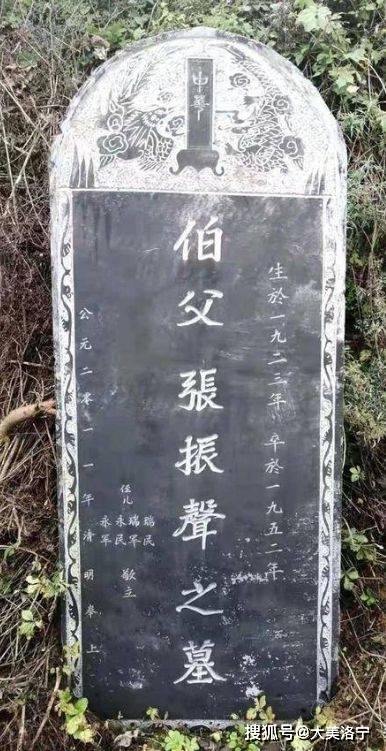 中華
生於一九二三年 卒於一九五二年
伯父張振聲之墓
瑞民
瑞军
永民
永军
侄儿
敬立
公元二零一一年清明奉上
搜狐号@大美洛宁